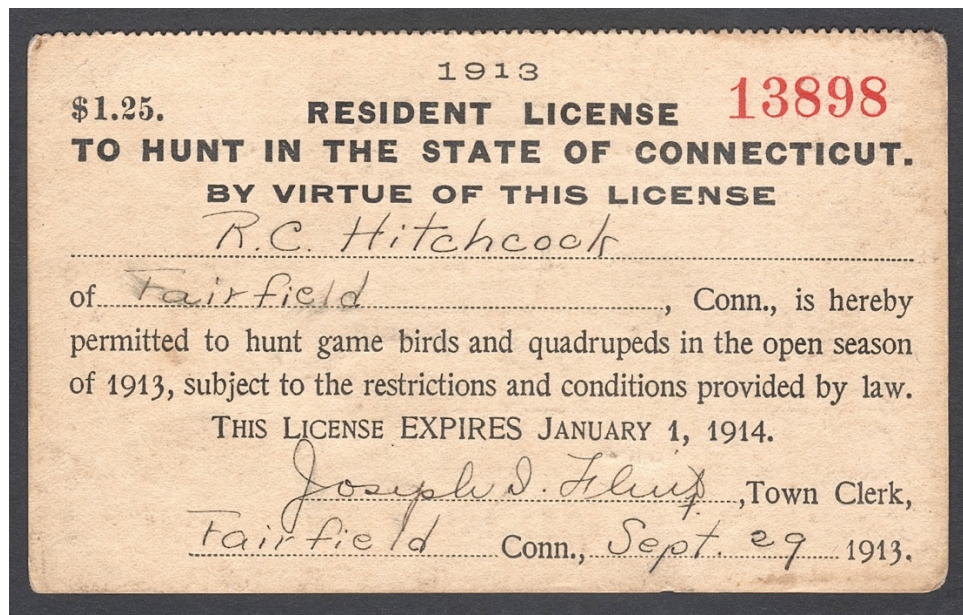 1913
$1.25. RESIDENT LICENSE 13898
TO HUNT IN THE STATE OF CONNECTICUT.
BY VIRTUE OF THIS LICENSE
R.C. Hitchcock
of Fairfield, Conn., is hereby
permitted to hunt game birds and quadrupeds in the open season
of 1913, subject to the restrictions and conditions provided by law.
THIS LICENSE EXPIRES JANUARY 1, 1914.
Joseph I. Flint, Town Clerk,
Fairfield Conn., Sept. 29 1913.